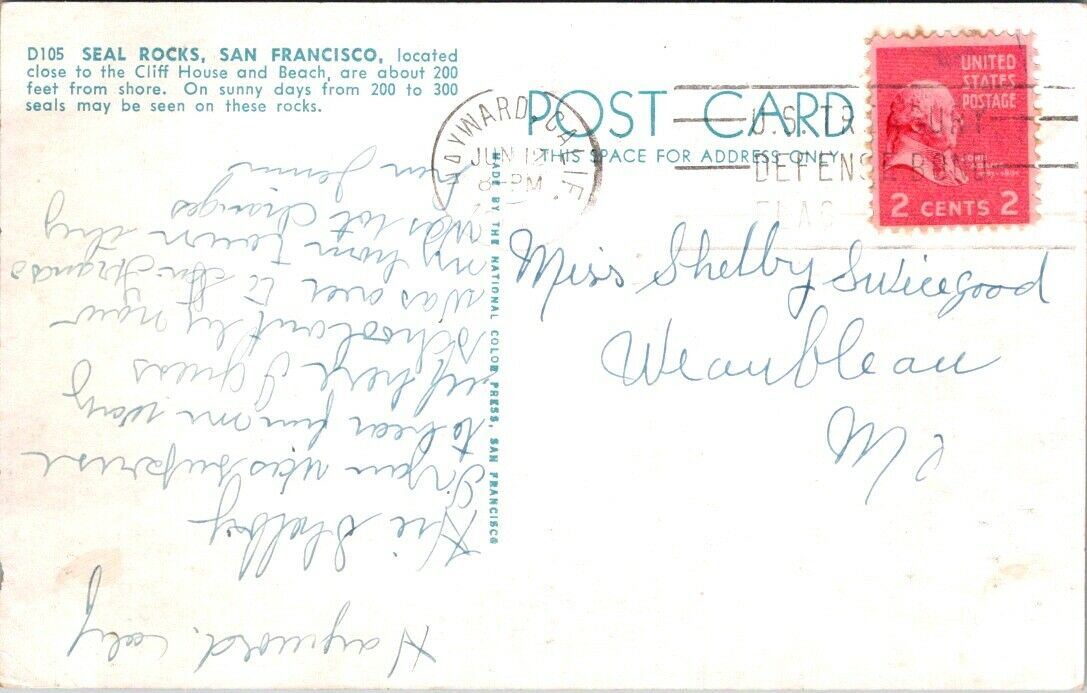 D105 SEAL ROCKS, SAN FRANCISCO, located
close to the Cliff House and Beach, are about 200
feet from shore. On sunny days from 200 to 300
seals may be seen on these rocks.
POST CARD
THIS SPACE FOR ADDRESS ONLY
HAYWARD, CALIF.
JUN 19
8-PM
U.S. TR
DEFENSE BOND
UNITED
STATES
POSTAGE
2 CENTS 2
MADE BY THE NATIONAL COLOR PRESS, SAN FRANCISCO
Miss Shelby Swicegood
Weaubleau
Mo
Hayward. Caly
Hie Shelby
was suprise
to hear from me way
up here I guess
school out by now
was over to San Frans
my home town they
was lot changes
from Jennie